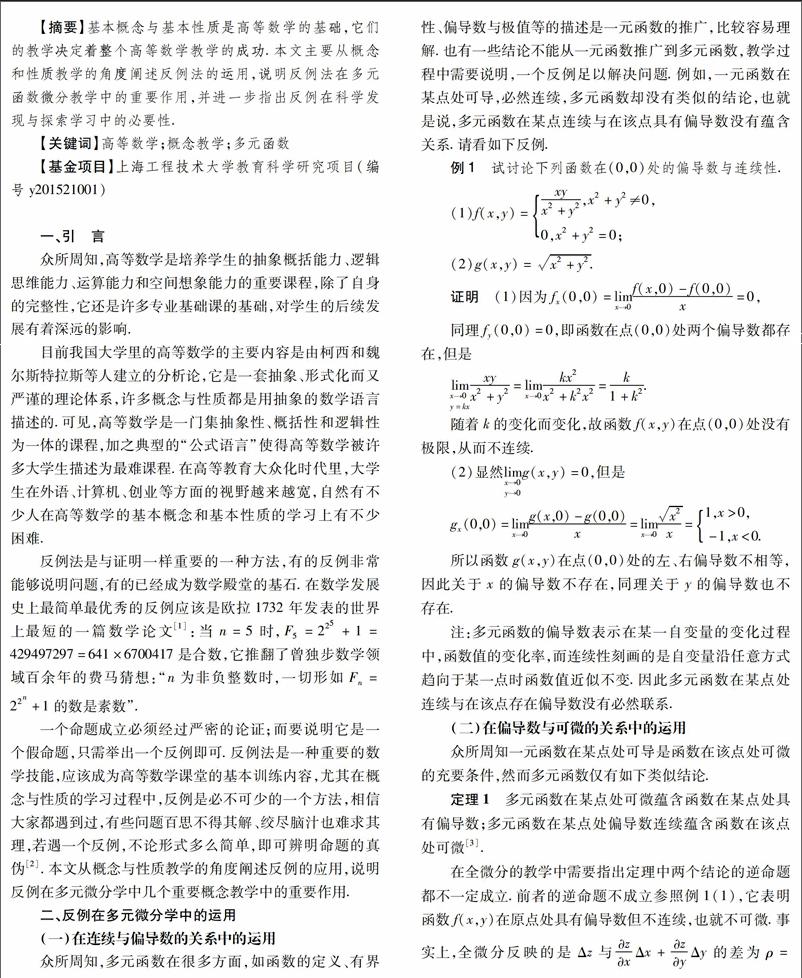 【摘要】基本概念与基本性质是高等数学的基础,它们
的教学决定着整个高等数学教学的成功.本文主要从概念
和性质教学的角度阐述反例法的运用,说明反例法在多元
函数微分教学中的重要作用,并进一步指出反例在科学发
现与探索学习中的必要性.
【关键词】高等数学;概念教学;多元函数
【基金项目】上海工程技术大学教育科学研究项目(编
号 y201521001)
一、引 言
众所周知,高等数学是培养学生的抽象概括能力、逻辑
思维能力、运算能力和空间想象能力的重要课程,除了自身
的完整性,它还是许多专业基础课的基础,对学生的后续发
展有着深远的影响.
目前我国大学里的高等数学的主要内容是由柯西和魏
尔斯特拉斯等人建立的分析论,它是一套抽象、形式化而又
严谨的理论体系,许多概念与性质都是用抽象的数学语言
描述的.可见,高等数学是一门集抽象性、概括性和逻辑性
为一体的课程,加之典型的“公式语言”使得高等数学被许
多大学生描述为最难课程.在高等教育大众化时代里,大学
生在外语、计算机、创业等方面的视野越来越宽,自然有不
少人在高等数学的基本概念和基本性质的学习上有不少
困难.
反例法是与证明一样重要的一种方法,有的反例非常
能够说明问题,有的已经成为数学殿堂的基石.在数学发展
史上最简单最优秀的反例应该是欧拉 1732 年发表的世界
上最短的一篇数学论文[1]:当 n = 5 时,F₅ = 2^2^5 + 1 =
429497297 = 641 × 6700417 是合数,它推翻了曾独步数学领
域百余年的费马猜想:“n 为非负整数时,一切形如 Fₙ =
2^2^n + 1 的数是素数”.
一个命题成立必须经过严密的论证;而要说明它是一
个假命题,只需举出一个反例即可.反例法是一种重要的数
学技能,应该成为高等数学课堂的基本训练内容,尤其在概
念与性质的学习过程中,反例是必不可少的一个方法,相信
大家都遇到过,有些问题百思不得其解、绞尽脑汁也难求其
理,若遇一个反例,不论形式多么简单,即可辨明命题的真
伪[2].本文从概念与性质教学的角度阐述反例的应用,说明
反例在多元微分学中几个重要概念教学中的重要作用.
二、反例在多元微分学中的运用
(一)在连续与偏导数的关系中的运用
众所周知,多元函数在很多方面,如函数的定义、有界
性、偏导数与极值等的描述是一元函数的推广,比较容易理
解.也有一些结论不能从一元函数推广到多元函数,教学过
程中需要说明,一个反例足以解决问题.例如,一元函数在
某点处可导,必然连续,多元函数却没有类似的结论,也就
是说,多元函数在某点连续与在该点具有偏导数没有蕴含
关系.请看如下反例.
例 1 试讨论下列函数在(0,0)处的偏导数与连续性.
(1)f(x,y) = { xy/(x² + y²), x² + y² ≠ 0,
0, x² + y² = 0;
(2)g(x,y) = √(x² + y²).
证明 (1)因为 fₓ(0,0) = lim x→0 (f(x,0) - f(0,0))/x = 0,
同理 f_y(0,0) = 0,即函数在点(0,0)处两个偏导数都存
在,但是
lim x→0 y=kx xy/(x² + y²) = lim x→0 kx²/(x² + k²x²) = k/(1 + k²).
随着 k 的变化而变化,故函数 f(x,y)在点(0,0)处没有
极限,从而不连续.
(2)显然 lim x→0 y→0 g(x,y) = 0,但是
gₓ(0,0) = lim x→0 (g(x,0) - g(0,0))/x = lim x→0 √x²/x = { 1, x > 0,
-1, x < 0.
所以函数 g(x,y)在点(0,0)处的左、右偏导数不相等,
因此关于 x 的偏导数不存在,同理关于 y 的偏导数也不
存在.
注:多元函数的偏导数表示在某一自变量的变化过程
中,函数值的变化率,而连续性刻画的是自变量沿任意方式
趋向于某一点时函数值近似不变.因此多元函数在某点处
连续与在该点存在偏导数没有必然联系.
(二)在偏导数与可微的关系中的运用
众所周知一元函数在某点处可导是函数在该点处可微
的充要条件,然而多元函数仅有如下类似结论.
定理 1 多元函数在某点处可微蕴含函数在某点处具
有偏导数;多元函数在某点处偏导数连续蕴含函数在该点
处可微[3].
在全微分的教学中需要指出定理中两个结论的逆命题
都不一定成立.前者的逆命题不成立参照例 1(1),它表明
函数 f(x,y)在原点处具有偏导数但不连续,也就不可微.事
实上,全微分反映的是 Δz 与 ∂z/∂x Δx + ∂z/∂y Δy 的差为 ρ =